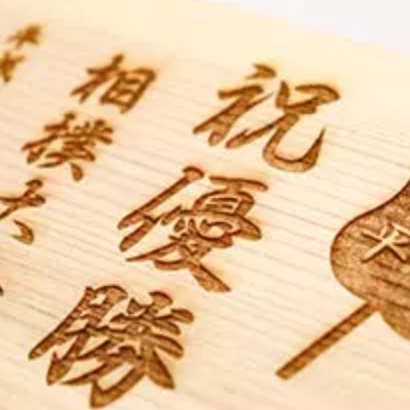 祝優勝
相撲大
平成